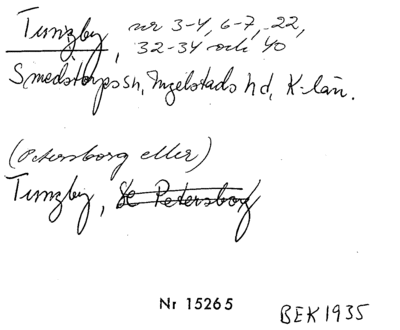 Tunzby, nr 3-4, 6-7, 22,
32-34 och 40
Smedstorps sn, Ingelstads hd, K-län.
(Petersborg eller)
Tunzby, St Petersborg
Nr 15265
BEK1935